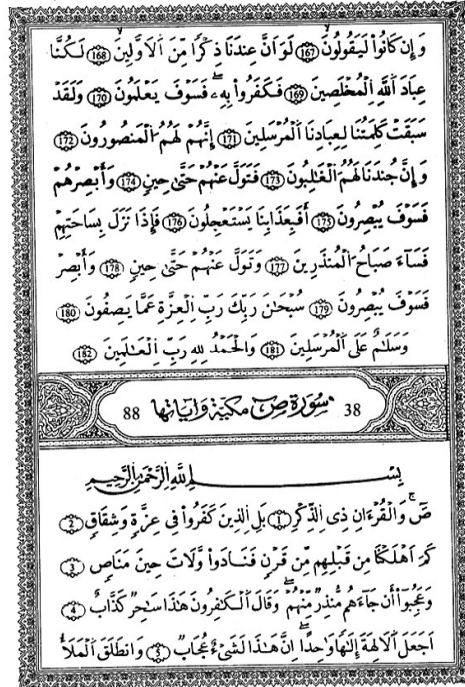 وَإِن كَانُوا۟ لَيَقُولُونَ 167 لَوَ اَنَّ عِندَنَا ذِكْرًا مِّنَ اَلَاوَّلِينَ 168 لَكُنَّا
عِبَادَ اَللَّهِ اِلْمُخْلَصِينَ 169 فَكَفَرُوا۟ بِهِۦ فَسَوْفَ يَعْلَمُونَ 170 وَلَقَدْ
سَبَقَتْ كَلِمَتُنَا لِعِبَادِنَا اَلْمُرْسَلِينَ 171 إِنَّهُمْ لَهُمُ اُلْمَنصُورُونَ 172
وَإِنَّ جُندَنَا لَهُمُ اُلْغَٰلِبُونَ 173 فَتَوَلَّ عَنْهُمْ حَتَّىٰ حِينٍ 174 وَأَبْصِرْهُمْ
فَسَوْفَ يُبْصِرُونَ 175 أَفَبِعَذَابِنَا يَسْتَعْجِلُونَ 176 فَإِذَا نَزَلَ بِسَاحَتِهِمْ
فَسَآءَ صَبَاحُ اُلْمُنذَرِينَ 177 وَتَوَلَّ عَنْهُمْ حَتَّىٰ حِينٍ 178 وَأَبْصِرْ
فَسَوْفَ يُبْصِرُونَ 179 سُبْحَٰنَ رَبِّكَ رَبِّ اِلْعِزَّةِ عَمَّا يَصِفُونَ 180
وَسَلَٰمٌ عَلَى اَلْمُرْسَلِينَ 181 وَالْحَمْدُ لِلهِ رَبِّ اِلْعَٰلَمِينَ 182
38 سورة ص مكية وءاياتها 88
بِسْمِ اللَّهِ الرَّحْمَٰنِ الرَّحِيمِ
صٓ وَالْقُرْءَانِ ذِى اِلذِّكْرِ 1 بَلِ اِلذِينَ كَفَرُوا۟ فِى عِزَّةٍ وَشِقَاقٍ 2
كَمَ اَهْلَكْنَا مِن قَبْلِهِم مِّن قَرْنٍ فَنَادَوا۟ وَّلَاتَ حِينَ مَنَاصٍ 3
وَعَجِبُوٓا۟ أَن جَآءَهُم مُّنذِرٌ مِّنْهُمْ وَقَالَ اَلْكَٰفِرُونَ هَٰذَا سَٰحِرٌ كَذَّابٌ 4
اَجَعَلَ اَلَالِهَةَ إِلَٰهًا وَٰحِدًا اِنَّ هَٰذَا لَشَىْءٌ عُجَابٌ 5 وَانطَلَقَ اَلْمَلَأُ